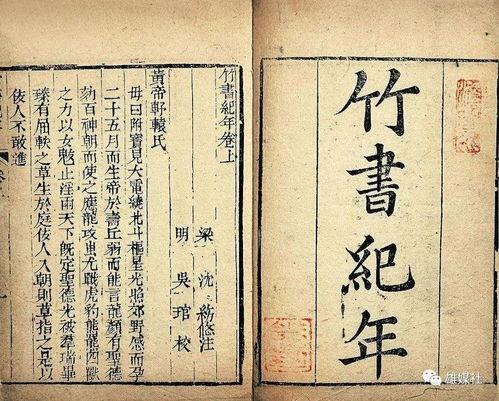 竹書紀年
竹書紀年卷上
梁 沈約附注
明 吳琯校
黃帝軒轅氏
母曰附寶見大電繞北斗樞星光照郊野感而孕
二十五月而生帝於壽丘弱而能言龍顏有聖德
劾百神朝而使之應龍攻蚩尤戰虎豹熊羆四獸
之力以女魃止淫雨天下既定聖德光被群瑞畢
臻有屈軼之草生於庭佞人入朝則草指之是以
佞人不敢進
雄媒社